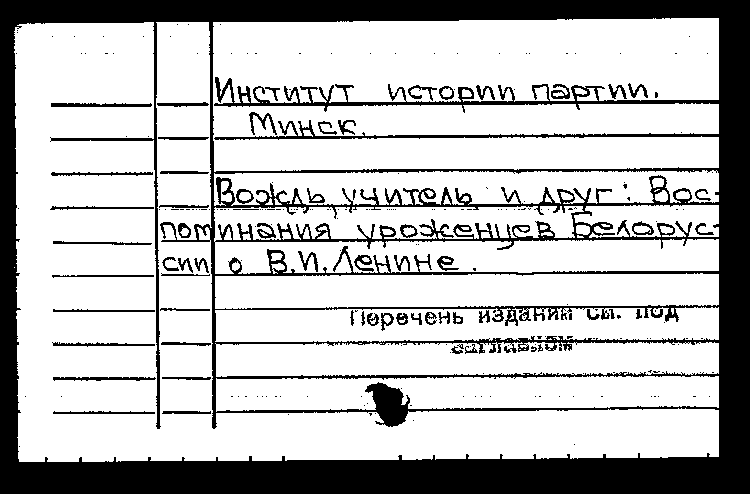 Институт истории партии.
Минск.
Вождь, учитель и друг: Вос-
поминания уроженцев Белорус-
сии о В.И.Ленине.
Перечень изданий см. под
заглавием